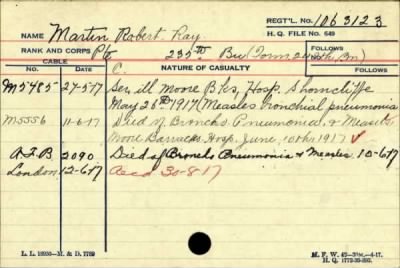 REGT'L. No. 1063123
H. Q. FILE No. 649
NAME Martin Robert Ray.
RANK AND CORPS Pte 235th Bn (Form 244th Bn)
FOLLOWS
FOLLOWS
CABLE
No. DATE NATURE OF CASUALTY
C.
M5485 27-5-17 Ser. ill Moore Bks, Hosp. Shorncliffe
May 28th 1917 (Measles Bronchial pneumonia
M5556 11-6-17 Died of Broncho Pneumonia, & Measles
Moore Barracks Hosp. June, 10th 1917
A.F.B. 2090 Died of Broncho Pneumonia & Measles 10-6-17
London 12-6-17 Recd 30-8-17
L. L. 18930—M. & D. 7789
M. F. W. 42—4-17.
H. Q. 1772-39-893.